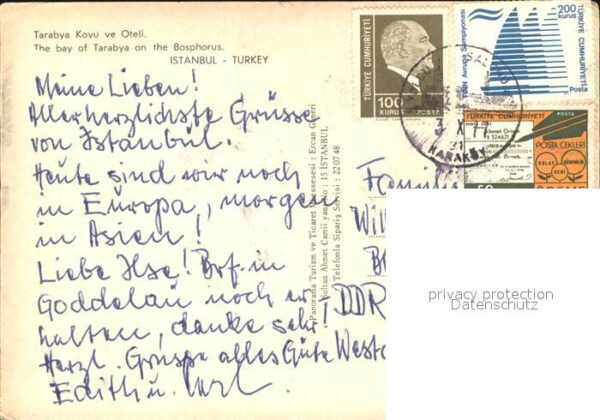 Tarabya Kovu ve Oteli.
The bay of Tarabya on the Bosphorus.
ISTANBUL - TURKEY
Meine Lieben!
Allerherzlichste Grüsse
von Istanbul.
Heute sind wir noch
in Europa, morgen
in Asien!
Liebe Ilse! Brf. in
Goddelau noch er
halten, danke sehr!
Herzl. Grüsse alles Gute
Edith u. Karl.
Panorama Turizm ve Ticaret Müessesesi : Ercan
Sultan Ahmet Camii yanı no : 15 İSTANBUL
Telefonla Sipariş Servisi : 22 07 48
Famili
Wil
DDR
TÜRKİYE CUMHURİYETİ
100
KURUŞ
TÜRKİYE CUMHURİYETİ
200
KURUŞ
Posta
KARAKÖY
TÜRKİYE CUMHURİYETİ
POSTA
POSTA ÇEKLERİ
KOLAY
50
privacy protection
Datenschutz